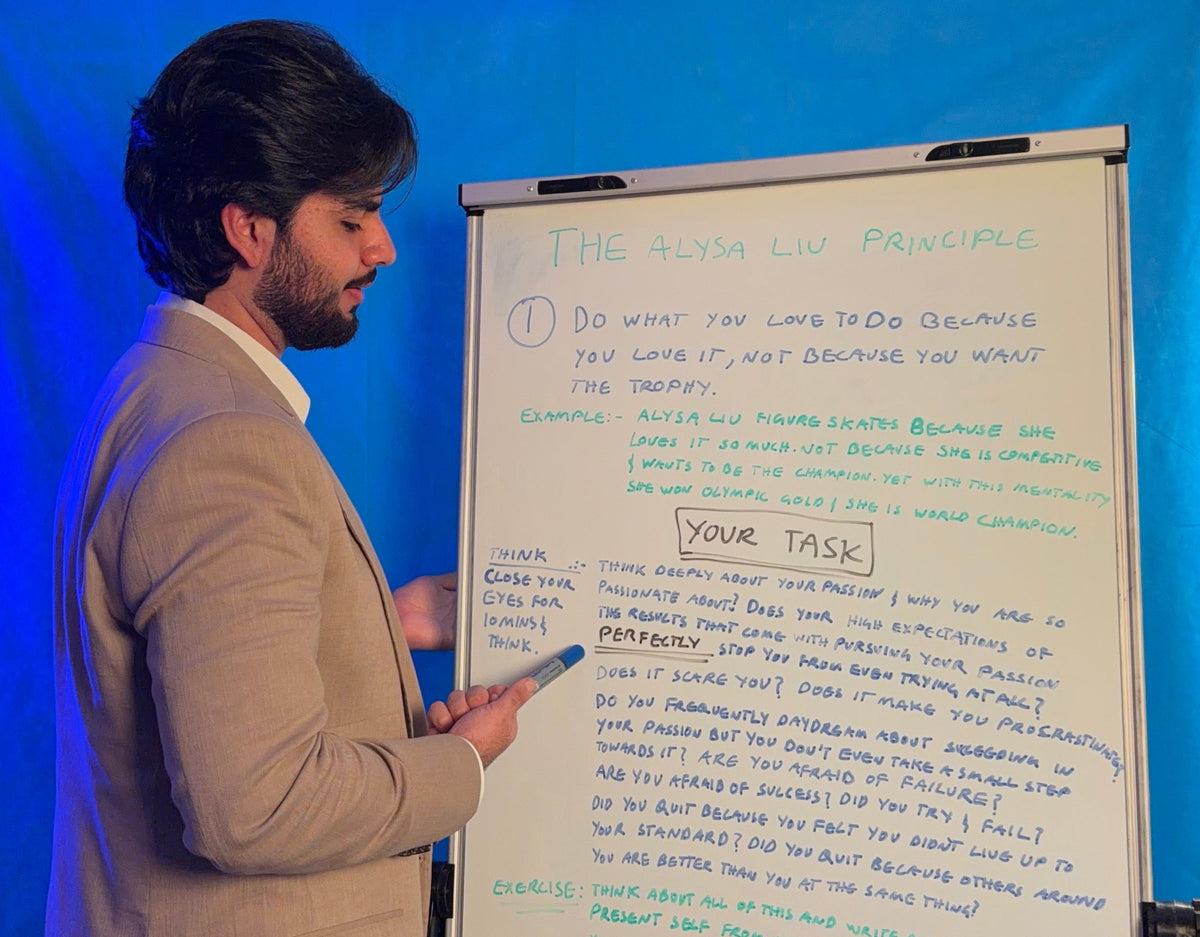 THE ALYSA LIU PRINCIPLE
1 DO WHAT YOU LOVE TO DO BECAUSE
YOU LOVE IT, NOT BECAUSE YOU WANT
THE TROPHY.
EXAMPLE:- ALYSA LIU FIGURE SKATES BECAUSE SHE
LOVES IT SO MUCH. NOT BECAUSE SHE IS COMPETITIVE
& WANTS TO BE THE CHAMPION. YET WITH THIS MENTALITY
SHE WON OLYMPIC GOLD & SHE IS WORLD CHAMPION.
YOUR TASK
THINK :-
CLOSE YOUR
EYES FOR
10 MINS &
THINK.
THINK DEEPLY ABOUT YOUR PASSION & WHY YOU ARE SO
PASSIONATE ABOUT? DOES YOUR HIGH EXPECTATIONS OF
THE RESULTS THAT COME WITH PURSUING YOUR PASSION
PERFECTLY STOP YOU FROM EVEN TRYING AT ALL?
DOES IT SCARE YOU? DOES IT MAKE YOU PROCRASTINATE?
DO YOU FREQUENTLY DAYDREAM ABOUT SUCCEEDING IN
YOUR PASSION BUT YOU DON'T EVEN TAKE A SMALL STEP
TOWARDS IT? ARE YOU AFRAID OF FAILURE?
ARE YOU AFRAID OF SUCCESS? DID YOU TRY & FAIL?
DID YOU QUIT BECAUSE YOU FELT YOU DIDN'T LIVE UP TO
YOUR STANDARD? DID YOU QUIT BECAUSE OTHERS AROUND
YOU ARE BETTER THAN YOU AT THE SAME THING?
EXERCISE: THINK ABOUT ALL OF THIS AND WRITE
PRESENT SELF FROM